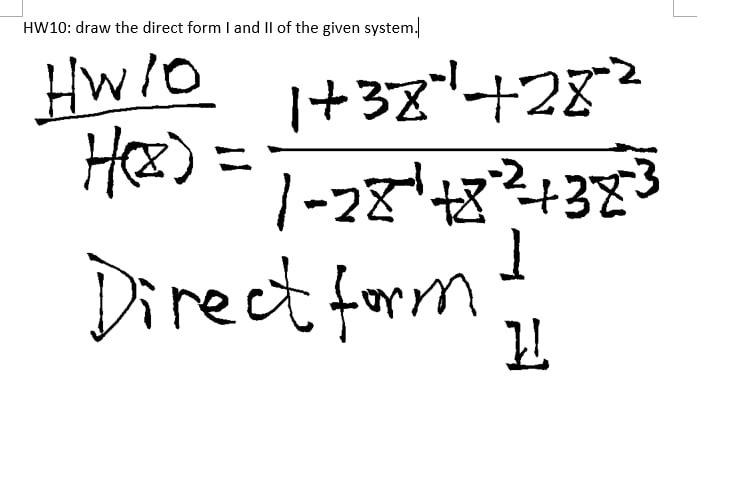 HW10: draw the direct form I and II of the given system.
HW10
H(z) = 1+3z⁻¹+2z⁻² / 1-2z⁻¹+z⁻²+3z⁻³
Direct form I
II